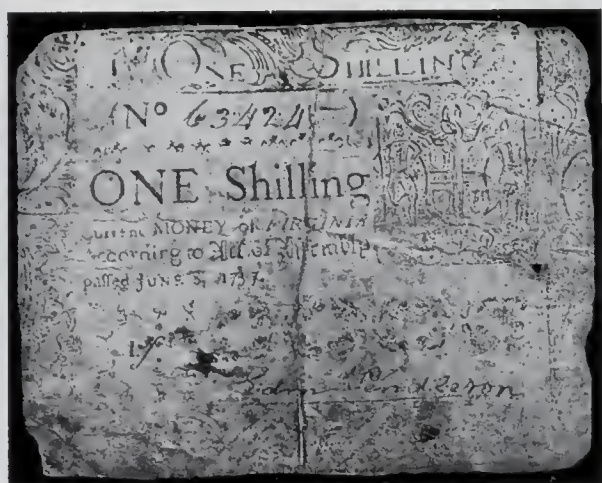 ONE SHILLING
(No 63424)
ONE Shilling
Current MONEY of VIRGINIA
according to Act of Assembly
passed JUNE 8, 1757.
1/
Edm Pendleton